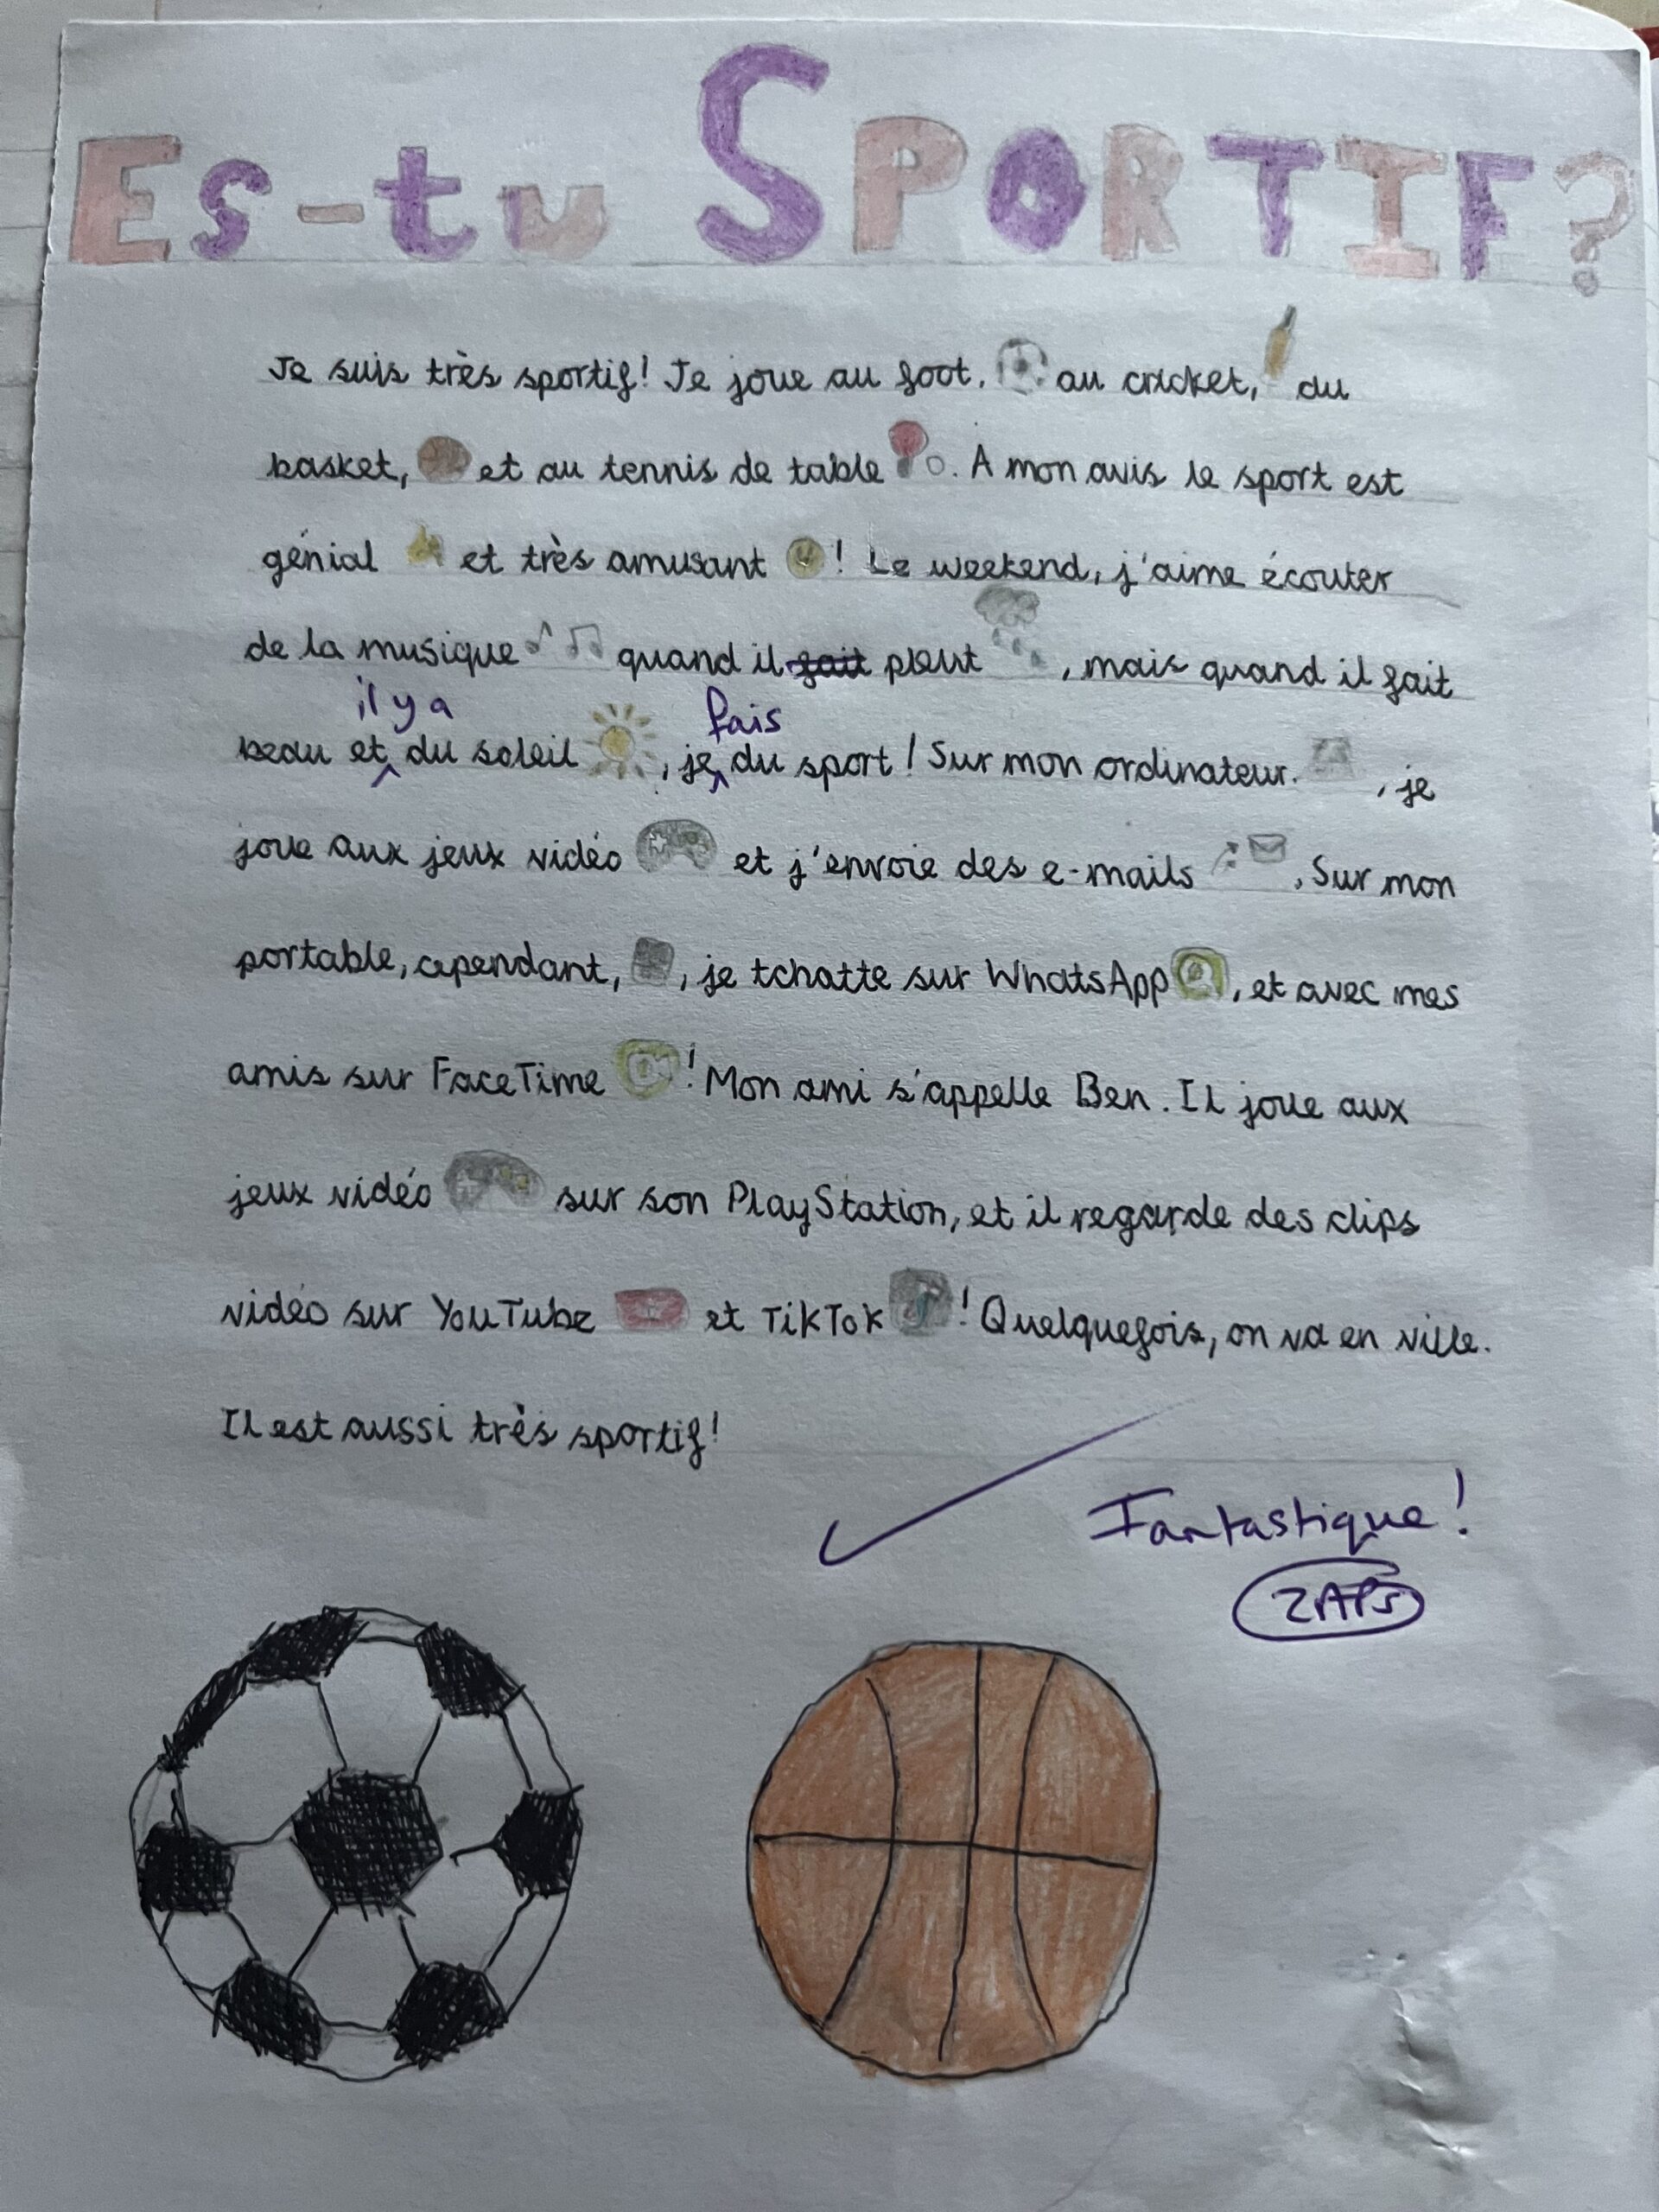 Es-tu SPORTIF?
Je suis très sportif! Je joue au foot, au cricket, du
basket, et au tennis de table. A mon avis le sport est
génial et très amusant! Le weekend, j'aime écouter
de la musique quand il fait pleut, mais quand il fait
il y a fais
beau et du soleil, je du sport! Sur mon ordinateur, je
joue aux jeux vidéo et j'envoie des e-mails. Sur mon
portable, cependant, je tchatte sur WhatsApp, et avec mes
amis sur FaceTime! Mon ami s'appelle Ben. Il joue aux
jeux vidéo sur son PlayStation, et il regarde des clips
vidéo sur YouTube et TikTok! Quelquefois, on va en ville.
Il est aussi très sportif!
Fantastique!
ZAPS